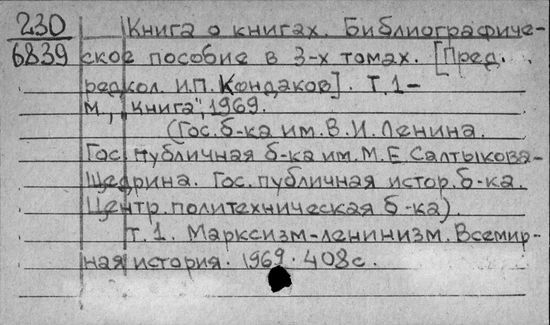 230 Книга о книгах. Библиографиче-
6839 ское пособие в 3-х томах. [Пред.
редкол. И.П. Кондаков]. Т. 1-
М., "Книга", 1969.
(Гос. б-ка им. В.И. Ленина.
Гос. публичная б-ка им. М.Е. Салтыкова-
Щедрина. Гос. публичная истор. б-ка.
Центр. политехническая б-ка).
Т. 1. Марксизм-ленинизм. Всемир-
ная история. 1969. 408с.